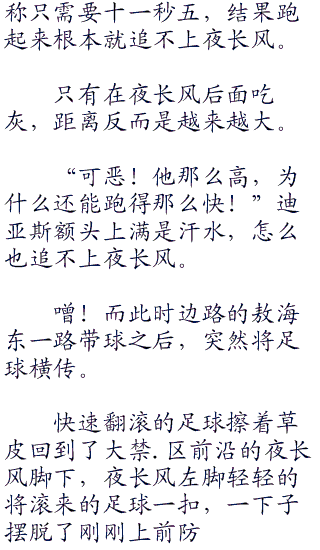 称只需要十一秒五，结果跑
起来根本就追不上夜长风。
只有在夜长风后面吃
灰，距离反而是越来越大。
“可恶！他那么高，为
什么还能跑得那么快！”迪
亚斯额头上满是汗水，怎么
也追不上夜长风。
噌！而此时边路的敖海
东一路带球之后，突然将足
球横传。
快速翻滚的足球擦着草
皮回到了大禁.区前沿的夜长
风脚下，夜长风左脚轻轻的
将滚来的足球一扣，一下子
摆脱了刚刚上前防